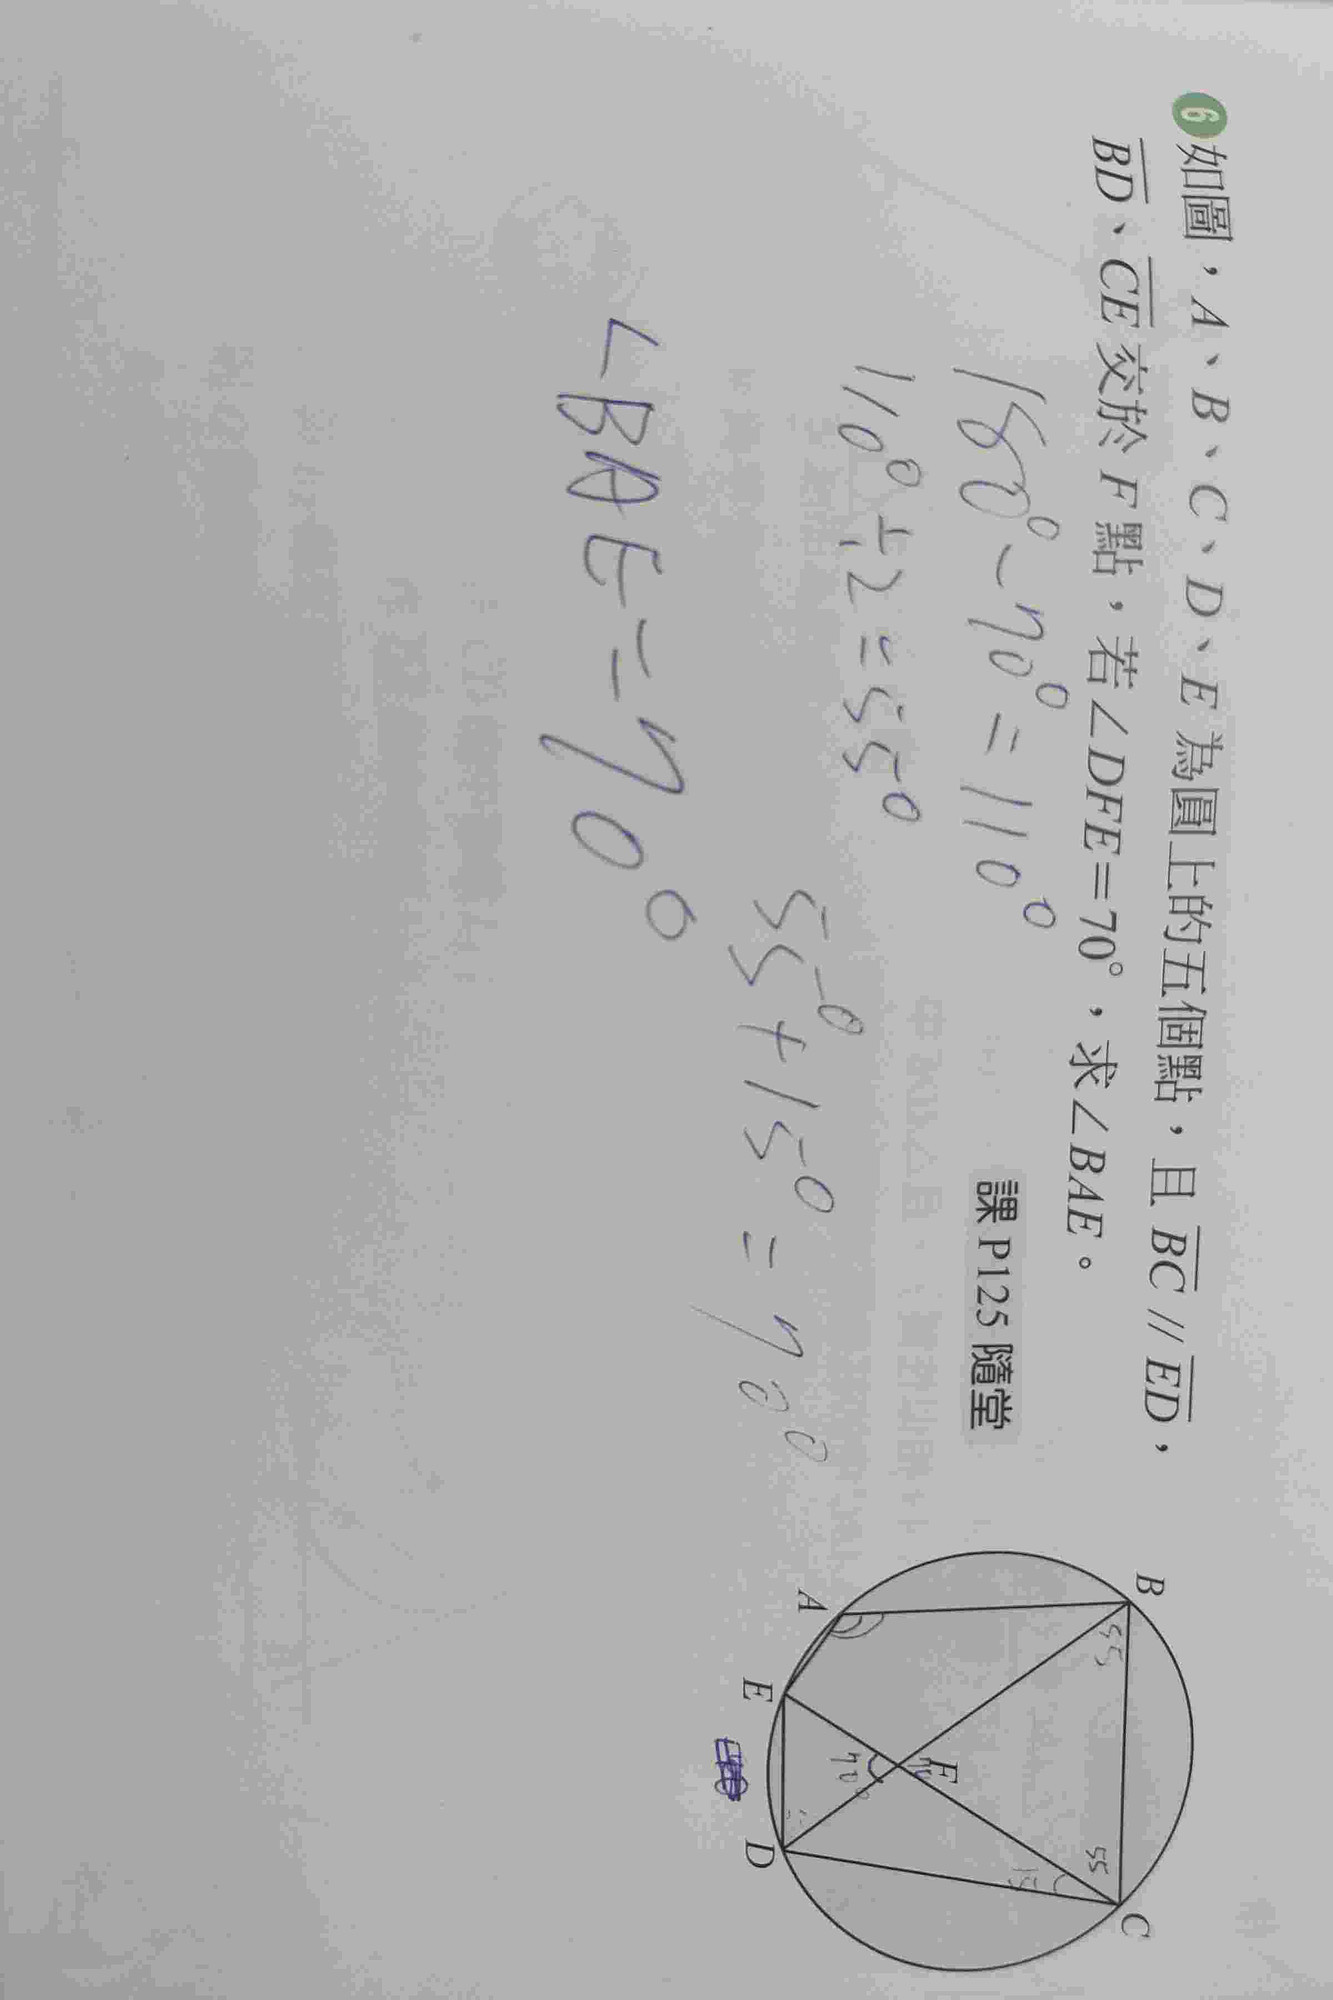 6 如圖，A、B、C、D、E 為圓上的五個點，且 BC // ED，
BD、CE 交於 F 點，若∠DFE=70°，求∠BAE。
課 P125 隨堂
180°-70°=110°
110°÷2=55°
55°+15°=70°
∠BAE=70°
B
55
55
C
F
70
70°
15
A
E
D